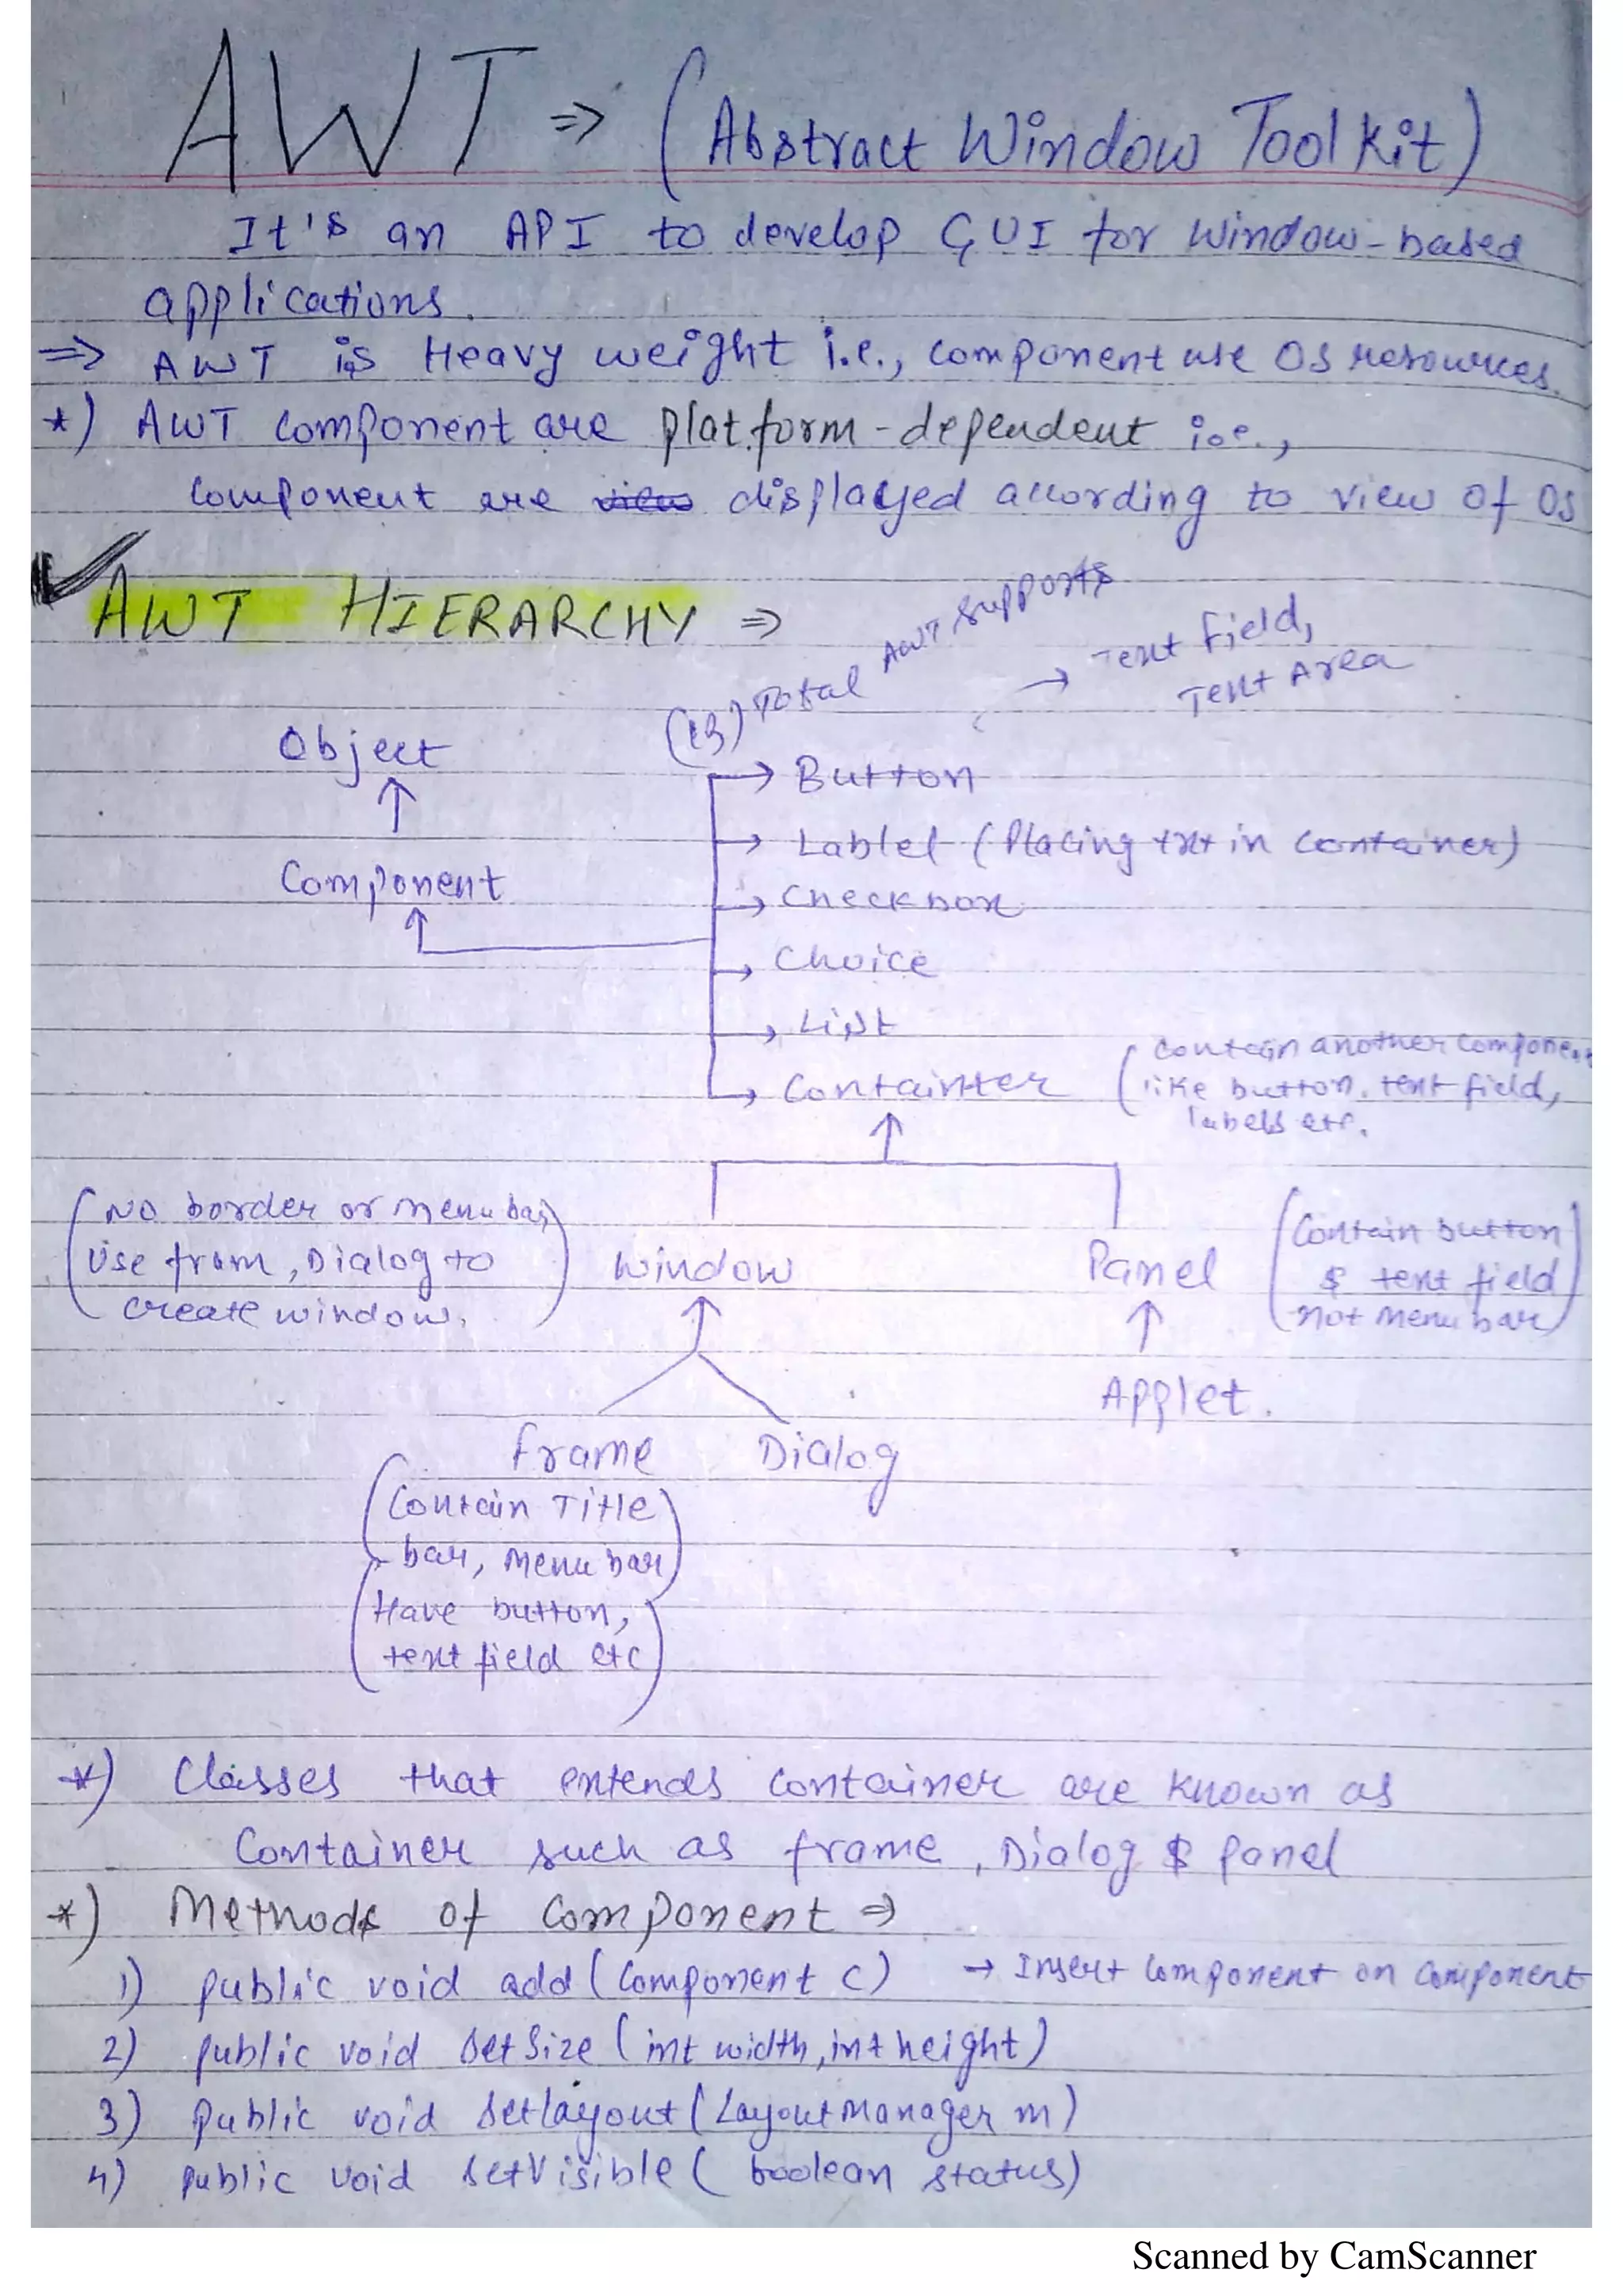 AWT ⇒ (Abstract Window Tool kit)
It's an API to develop GUI for Window-based
applications.
⇒ AWT is Heavy weight i.e., component use OS resources.
*) AWT component are platform-dependent i.e.,
component are view displayed according to view of OS
AWT HIERARCHY ⇒
(13) Total AWT supports
→ Text Field,
Text Area
Object
→ Button
→ Lablel (Placing txt in container)
Component
→ Checkbox
→ Choice
→ List
→ Containter
(contain another component
like button, text field,
labels etc.
(No border or menu bar,
Use fram, Dialog to
create window.)
Window
Panel
(Contain button
& text field
not menu bar)
Applet.
frame Dialog
(Contain Title
bar, menu bar)
(Have button,
text field etc)
*) Classes that extends container are known as
Container such as frame, Dialog & panel
*) Methods of Component ⇒
1) public void add (Component c) → Insert component on component
2) public void setSize (int width, int height)
3) public void setlayout (LayoutManager m)
4) public void setVisible ( boolean status)
Scanned by CamScanner